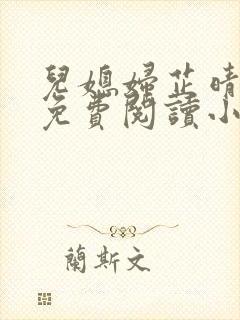 兒媳婦芷晴
免費閱讀小
蘭斯文